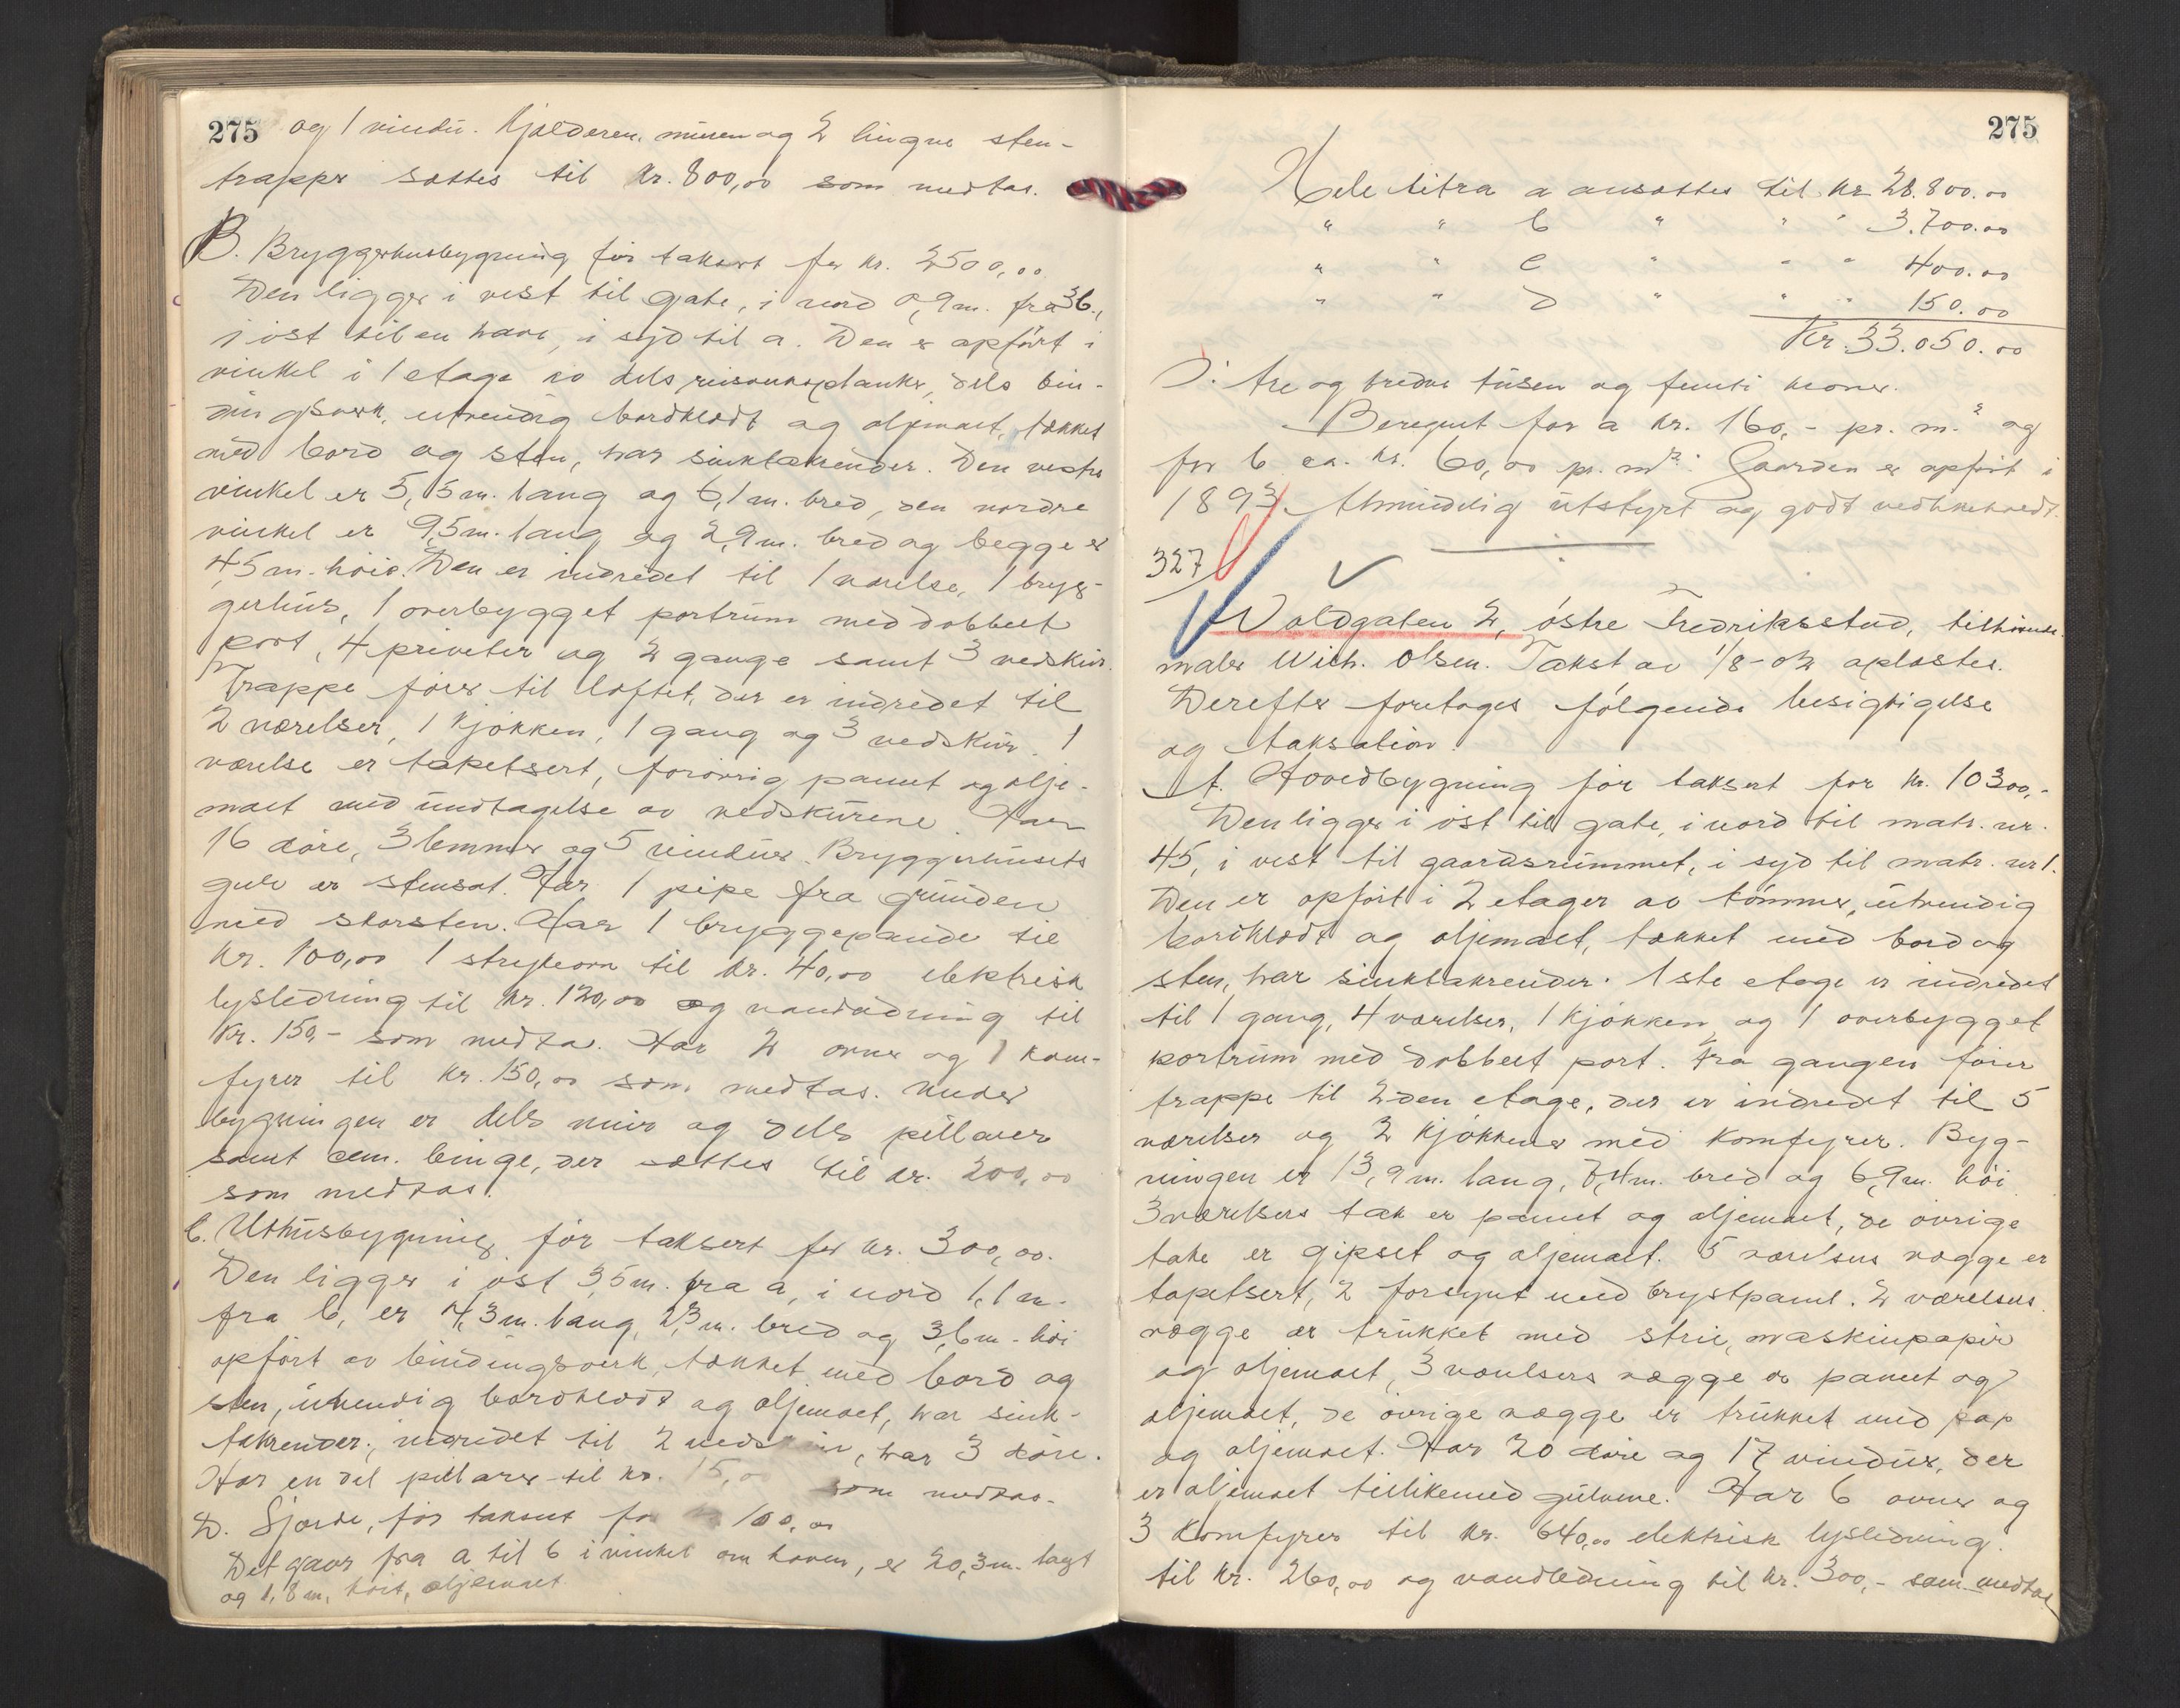 275 og 1 vindu. Kjælderen, muren og 2 hugne sten-
trapper sættes til kr. 800,00 som medtas.
B. Bryggerhusbygning før taksert for kr. 2500,00
Den ligger i vest til gate, i nord 0,9 m. fra 36,
i øst til en have, i syd til a. Den er opført i
vinkel i 1 etage av dels reisverksplanke, dels bin-
dingsverk, utvendig bordklædt og oljemalt, tækket
med bord og sten, har sinktakrender. Den vestre
vinkel er 5,5 m. lang og 6,1 m. bred, den nordre
vinkel er 9,5 m. lang og 2,9 m. bred og begge er
4,5 m. høie. Den er indredet til 1 værelse, 1 bryg-
gerhus, 1 overbygget portrum med dobbelt
port, 4 priveter og 2 gange samt 3 vedskur.
Trappe fører til loftet, der er indredet til
2 værelser, 1 kjøkken, 1 gang og 3 vedskur. 1
værelse er tapetsert, forøvrig panelt og olje-
malt med undtagelse av vedskurene. Har
16 døre, 3 lemmer og 5 vinduer. Bryggerhusets
gulv er stensat. Har 1 pipe fra grunden
med skorsten. Har 1 bryggepande til
kr. 100,00 1 strykeovn til kr. 40,00 elektrisk
lysledning til kr. 120,00 og vandledning til
kr. 150,- som medta. Har 2 ovner og 1 kom-
fyrer til kr. 150,00 som medtas. Under
bygningen er dels mur og dels pillarer
samt cem. binge, der sættes til kr. 200,00
som medtas.
C. Uthusbygning før taksert for kr. 300,00.
Den ligger i øst 3,5 m. fra a, i nord 1,1 m.
fra b, er 4,3 m. lang, 2,3 m. bred og 3,6 m. høi
opført av bindingsverk, tækket med bord og
sten, utvendig bordklædt og oljemalt, har sink-
takrender, indredet til 2 vedskur, har 3 døre.
Har en del pillarer til kr. 15,00 som medtas.
D. Gjærde, før taksert for kr 100,00
Det gaar fra a til b i vinkel om haven, er 20,3 m. langt
og 1,8 m, høit, oljemalt.
275
Hele litra a ansættes til kr 28.800.00
" " b " " " 3.700.00
" " c " " " 400.00
" " d " " " 150.00
Kr. 33.050.00
D: tre og tredve tusen og femti kroner.
Beregnet for a kr. 160,- pr. m.² og
for b ca. kr. 60,00 pr. m²: Gaarden er opført i
1893. Almindelig utstyrt og godt vedlikeholdt.
327
Voldgaten 2, østre Fredriksstad, tilhørende
maler Wilh. Olsen. Takst av 1/8-02 oplæstes.
Derefter foretoges følgende besigtigelse
og taksation:
A. Hovedbygning før taksert for kr. 10300,-
Den ligger i øst til gate, i nord til matr. nr.
45, i vest til gaardsrummet, i syd til matr. nr 1.
Den er opført i 2 etager av tømmer, utvendig
bordklædt og oljemalt, tækket med bord og
sten, har sinktakrender. 1ste etage er indredet
til 1 gang, 4 værelser, 1 kjøkken og 1 overbygget
portrum med dobbelt port. Fra gangen fører
trappe til 2den etage, der er indredet til 5
værelser og 2 kjøkkener med komfyrer. Byg-
ningen er 13,9 m. lang, 7,4 m. bred og 6,9 m. høi
3 værelsers tak er panelt og oljemalt, de øvrige
take er gipset og oljemalt. 5 værelsers vægge er
tapetsert, 2 forsynt med brystpanel. 2 værelsers
vægge er trukket med strie, maskinpapir
og oljemalt, 3 værelsers vægge er panelt og
oljemalt, de øvrige vægge er trukket med pap
og oljemalt. Har 20 døre og 17 vinduer, der
er oljemalt tillikemed gulvene. Har 6 ovner og
3 komfyrer til kr. 640,00 elektrisk lysledning
til kr. 260,00 og vandledning til kr. 300,- som medtas